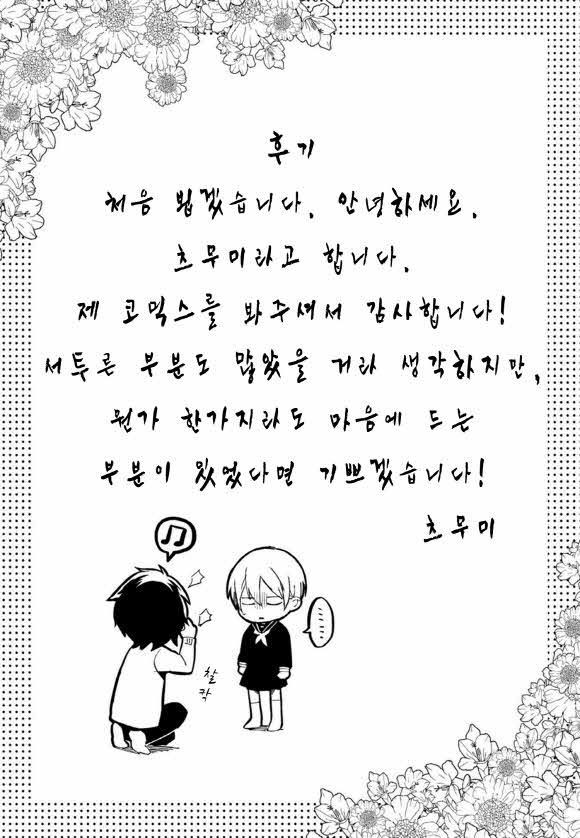 후기
처음 뵙겠습니다. 안녕하세요.
츠무미라고 합니다.
제 코믹스를 봐주셔서 감사합니다!
서투른 부분도 많았을 거라 생각하지만,
뭔가 한가지라도 마음에 드는
부분이 있었다면 기쁘겠습니다!
츠무미
찰
칵